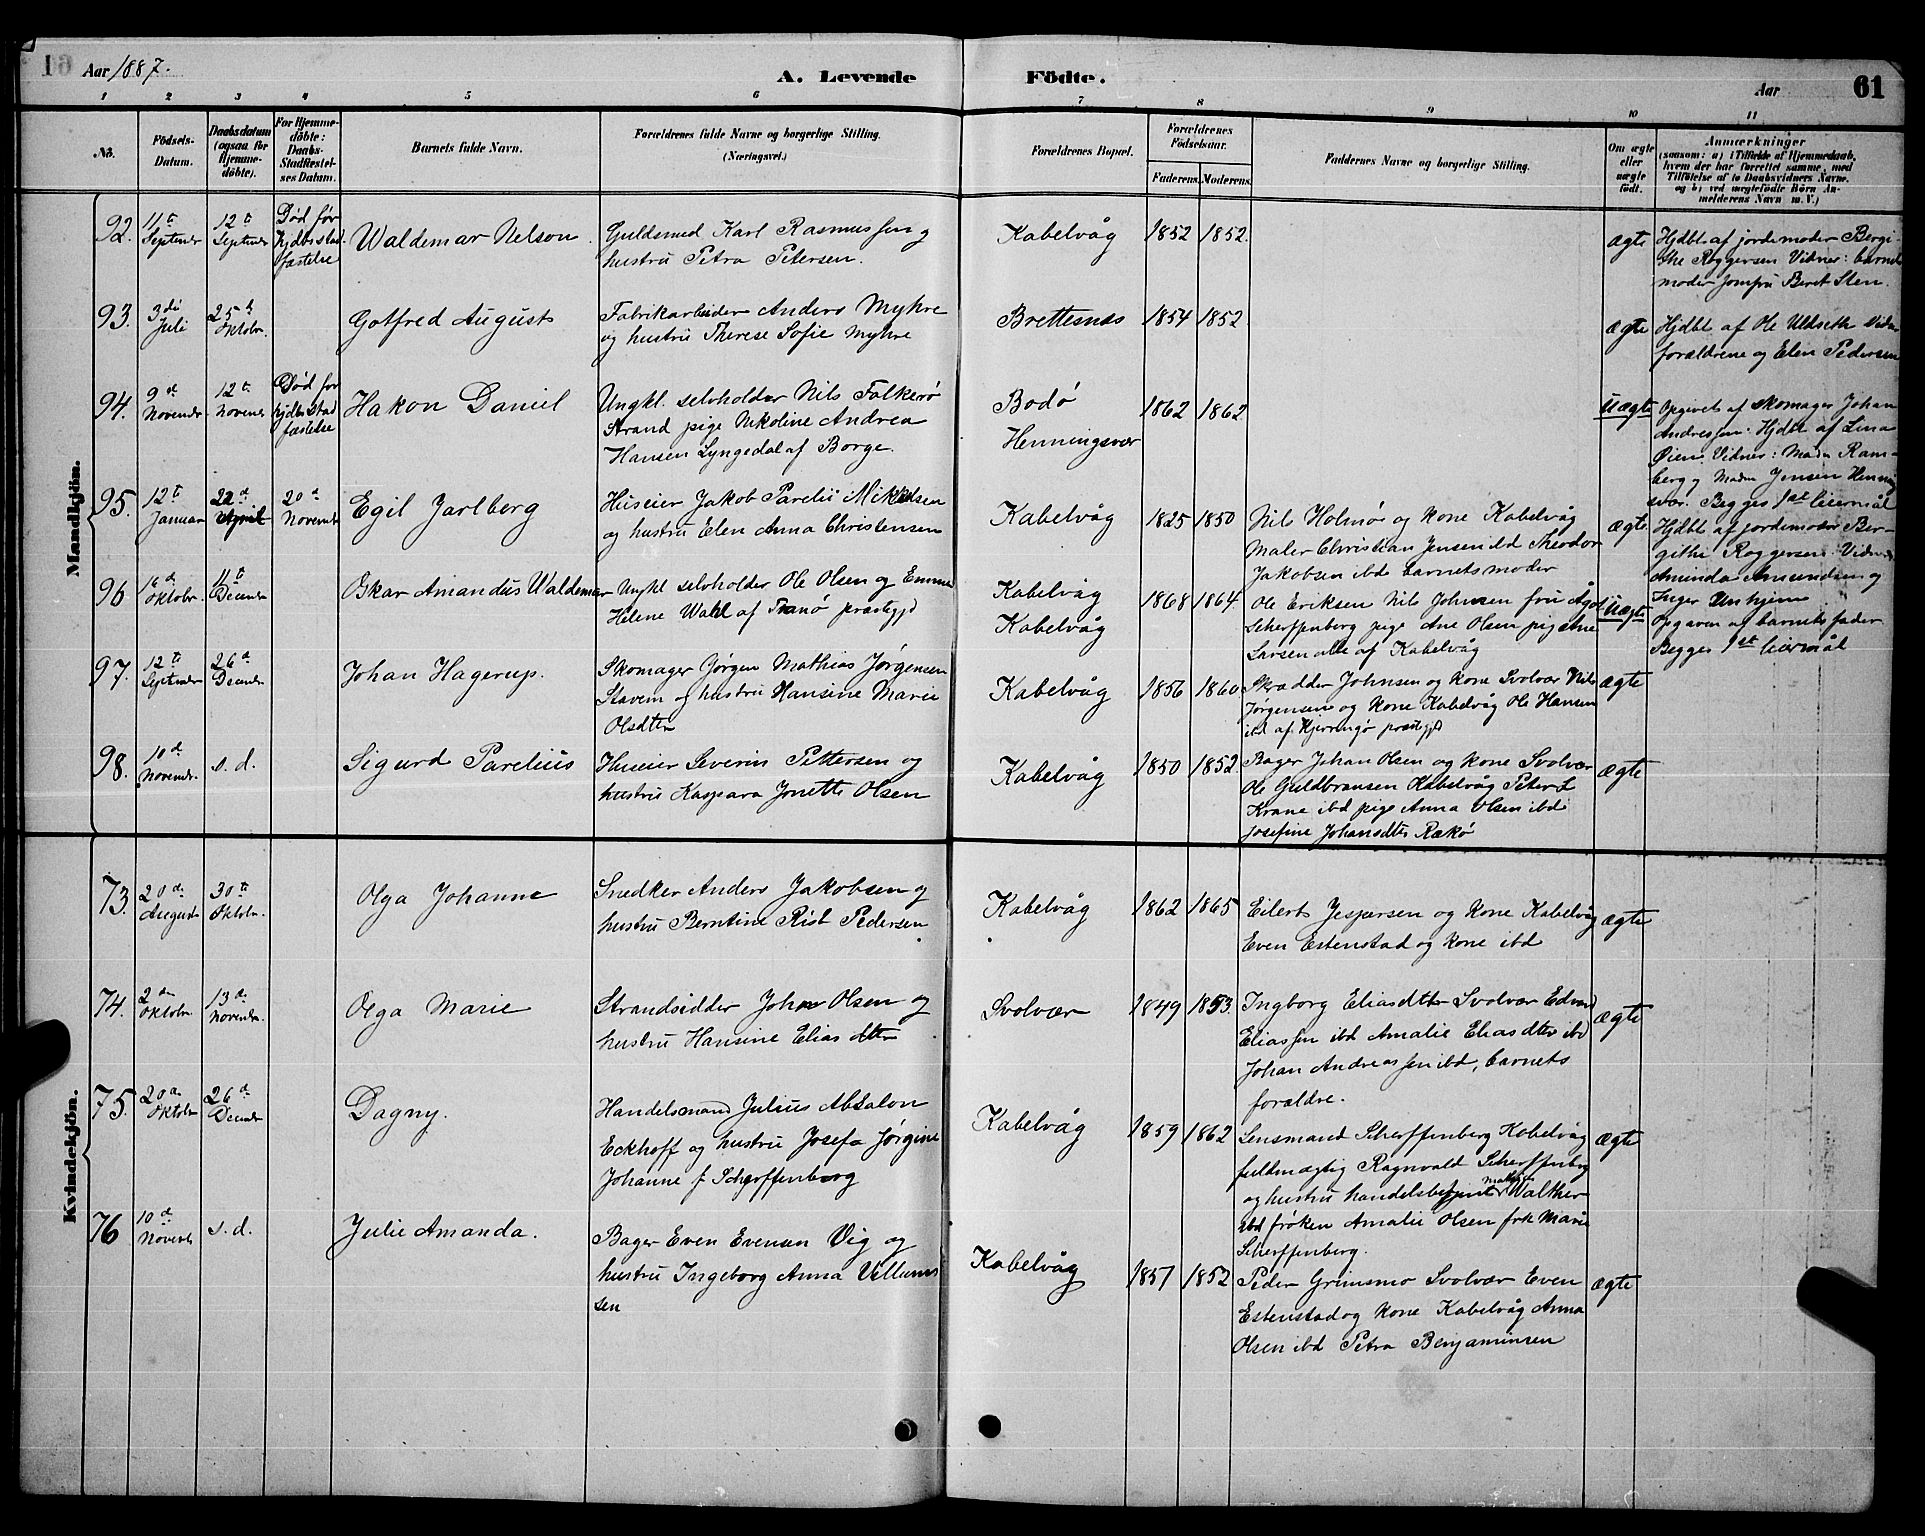 Aar 1887.
A. Levende Födte.
Aar
61
1 2 3 4 5 6 7 8 9 10 11
No.
Födsels-Datum.
Daabsdatum (ogsaa for Hjemme-döbte).
For Hjemme-döbte: Daabs-Stadfæstel-ses Datum.
Barnets fulde Navn.
Forældrenes fulde Navne og borgerlige Stilling. (Næringsvei.)
Forældrenes Bopæl.
Forældrenes Födselsaar.
Faderens. Moderens.
Faddernes Navne og borgerlige Stilling.
Om ægte eller uægte födt.
Anmærkninger
(saasom: a) i Tilfælde af Hjemmedaab, hvem der har forrettet samme, med Tilföielse af to Daabsvidners Navne. og b) ved uægtefödte Börn An-melderens Navn m. V.)
Mandkjön.
92. 11te September 12te September Død før hjdbs stad-fæstelse Waldemar Nelson.
Guldsmed Karl Rasmussen og
hustru Petra Petersen.
Kabelvåg 1852 1852. ægte
Hjdbt af jordemoder Bergi-
the Roggersen Vidner: barnets
moder jomfru Beret Sten.
93. 3die Juli 25de Oktobr. Gotfred August
Fabrikarbeider Anders Myhre
og hustru Therese Sofie Myhre
Brettesnes 1854 1852 ægte
Hjdbt af Ole Uldseth Vidn
forældrene og Elen Pedersen
94. 9de Novembr 12te Novembr Død før hjdbs stad fæstelse Hakon Daniel
Ungkl. selvholder Nils Falkerø
Strand pige Nikoline Andrea
Hansen Lyngedal af Borge.
Bodø
Henningsvær
1862 1862 Uægte
Opgivet af skomager Johan
Andreassen. Hjdbt af Lina
Øien. Vidner: Madm Ram-
berg og Madm Jensen Henning
svær. Begges 1st leiermål
95. 12te Januar 22de April 20de Novembr Egil Jarlberg
Huseier Jakob Parelii Mikkelsen
og hustru Elen Anna Christensen
Kabelvåg 1825 1850
Nils Holmøe og kone Kabelvåg
Maler Christian Jensen ibd Theodor
Jakobsen ibd barnets moder
ægte
Hjdbt af jordemoder Ber-
githe Roggersen. Vidner
Aminda Amundsen og
Inger Unhjem
96. 16de Oktobr. 11te Decembr Oskar Amandus Waldemar
Ungkl selvholder Ole Olsen og Emma
Helene Wahl af Tranø præstegjd
Kabelvåg
Kabelvåg
1868 1864.
Ole Eriksen Nils Johnsen fru Agot
Scherffenberg pige Ane Olsen pige Ane
Larsen alle af Kabelvåg
Uægte
Opgaven af barnets fader
Begges 1st leiermål
97. 12te September 26de Decembr Johan Hagerup.
Skomager Jørgen Mathias Jørgensen
Stavem og hustru Hansine Marie
Olsdtr
Kabelvåg 1856 1860
Skrædder Johnsen og kone Svolvær Nils
Jørgensen og kone Kabelvåg Ole Hansen
ibd af Kjerringø præstegjd
ægte
98. 10de Novembr. s. d. Sigurd Parelius
Huseier Severin Pettersen og
hustru Kaspara Jonette Olsen
Kabelvåg 1850 1852
Bager Johan Olsen og kone Svolvær
Ole Guldbransen Kabelvåg Peter L
Krane ibd pige Anna Olsen ibd
Josefine Johansdtr Rækø
ægte
Kvindekjön.
73. 20de August 30te Oktobr. Olga Johanne
Snedker Anders Jakobsen og
hustru Berntine Rist Pedersen
Kabelvåg 1862 1865
Eilert Jespersen og kone Kabelvåg
Even Estenstad og kone ibd
ægte
74. 2den Oktobr 13de Novembr. Olga Marie
Strandsidder Johan Olsen og
hustru Hansine Eliasdtter
Svolvær 1849 1853.
Ingborg Eliasdtter Svolvær Edvard
Eliassen ibd Amalie Eliasdtter ibd
Johan Andreassen ibd, barnets
forældre.
ægte
75. 20de Oktobr 26de Decembr Dagny.
Handelsmand Julius Absalon
Eckhoff og hustru Josefa Jørgine
Johanne f Scherffenberg
Kabelvåg 1859 1862
Lensmand Scherffenberg Kabelvåg
fuldmægtig Ragnvald Scherffenberg
og hustru handelsbetjent Walther
ibd frøken Amalie Olsen frk Marie
Scherffenberg.
ægte
76 10de Novembr s. d. Julie Amanda.
Bager Even Evensen Vig og
hustru Ingeborg Anna Villums
sen
Kabelvåg 1857 1852
Peder Grimsmo Svolvær Even
Estenstad og kone Kabelvåg Anna
Olsen ibd Petra Benjaminsen
ægte